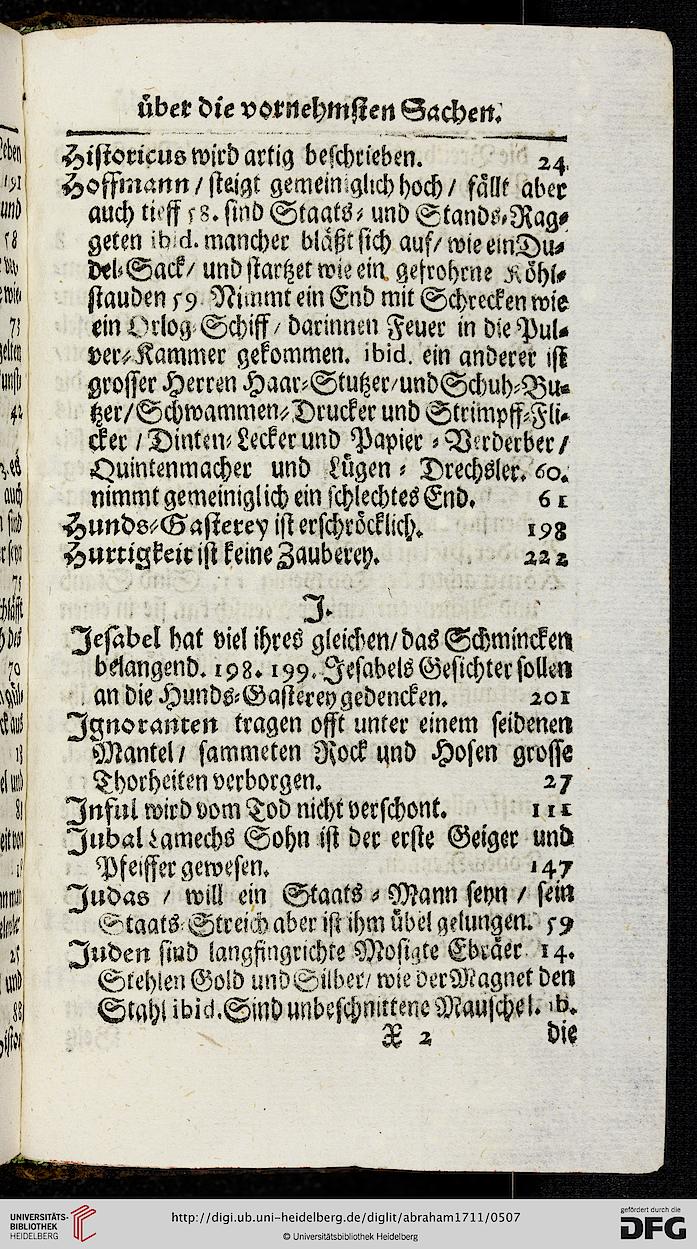 über die vornehmsten Sachen.
Historicus wird artig beschrieben. 24
Hoffmann / steigt gemeiniglich hoch / fällt aber
auch tieff 58. sind Staats- und Stands-Rag-
geten ibid. mancher bläßt sich auf / wie ein Du-
del-Sack / und startzet wie ein gefrohrne Köhl-
stauden 59. Nimmt ein End mit Schrecken wie
ein Orlog-Schiff / darinnen Feuer in die Pul-
ver-Kammer gekommen. ibid. ein anderer ist
grosser Herren Haar-Stutzer / und Schuh-Bu-
tzer / Schwammen-Drucker und Strimpff-Fli-
cker / Dinten-Lecker und Papier-Verderber /
Quintenmacher und Lügen-Drechsler. 60.
nimmt gemeiniglich ein schlechtes End. 61
Hunds-Gasterey ist erschröcklich. 198
Hurtigkeit ist keine Zauberey. 222
J.
Jesabel hat viel ihres gleichen / das Schmincken
belangend. 198. 199. Jesabels Gesichter sollen
an die Hunds-Gasterey gedencken. 201
Ignoranten tragen offt unter einem seidenen
Mantel / sammeten Rock und Hosen grosse
Thorheiten verborgen. 27
Inful wird vom Tod nicht verschont. 111
Jubal Lamechs Sohn ist der erste Geiger und
Pfeiffer gewesen. 147
Judas / will ein Staats-Mann seyn / sein
Staats-Streich aber ist ihm übel gelungen. 59
Juden sind langfingrichte Mosigte Ebräer 14.
Stehlen Gold und Silber / wie der Magnet den
Stahl ibid. Sind unbeschnittene Mauschel. ib.
X 2 die
UNIVERSITÄTS-
BIBLIOTHEK
HEIDELBERG
http://digi.ub.uni-heidelberg.de/diglit/abraham1711/0507
© Universitätsbibliothek Heidelberg
gefördert durch die
DFG